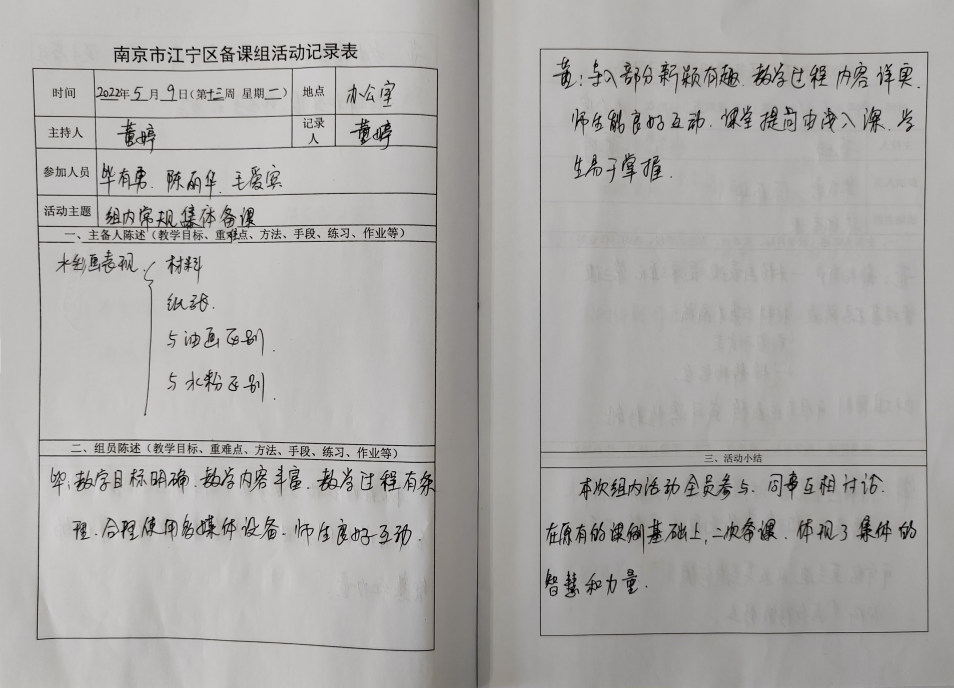 南京市江宁区备课组活动记录表
时间 2022年5月9日(第十三周 星期一) 地点 办公室
主持人 董婷 记录人 董婷
参加人员 毕有勇、陈丽华、毛爱寅
活动主题 组内常规集体备课
一、主备人陈述（教学目标、重难点、方法、手段、练习、作业等）
水彩画表现 材料
纸张
与油画区别
与水粉区别
二、组员陈述（教学目标、重难点、方法、手段、练习、作业等）
毕：教学目标明确、教学内容丰富、教学过程有条
理、合理使用多媒体设备、师生良好互动.
黄：导入部分新颖有趣、教学过程内容详实.
师生能良好互动、课堂提问由浅入深、学
生易于掌握.
三、活动小结
本次组内活动全员参与、同事互相讨论.
在原有的课例基础上,二次备课、体现了集体的
智慧和力量.